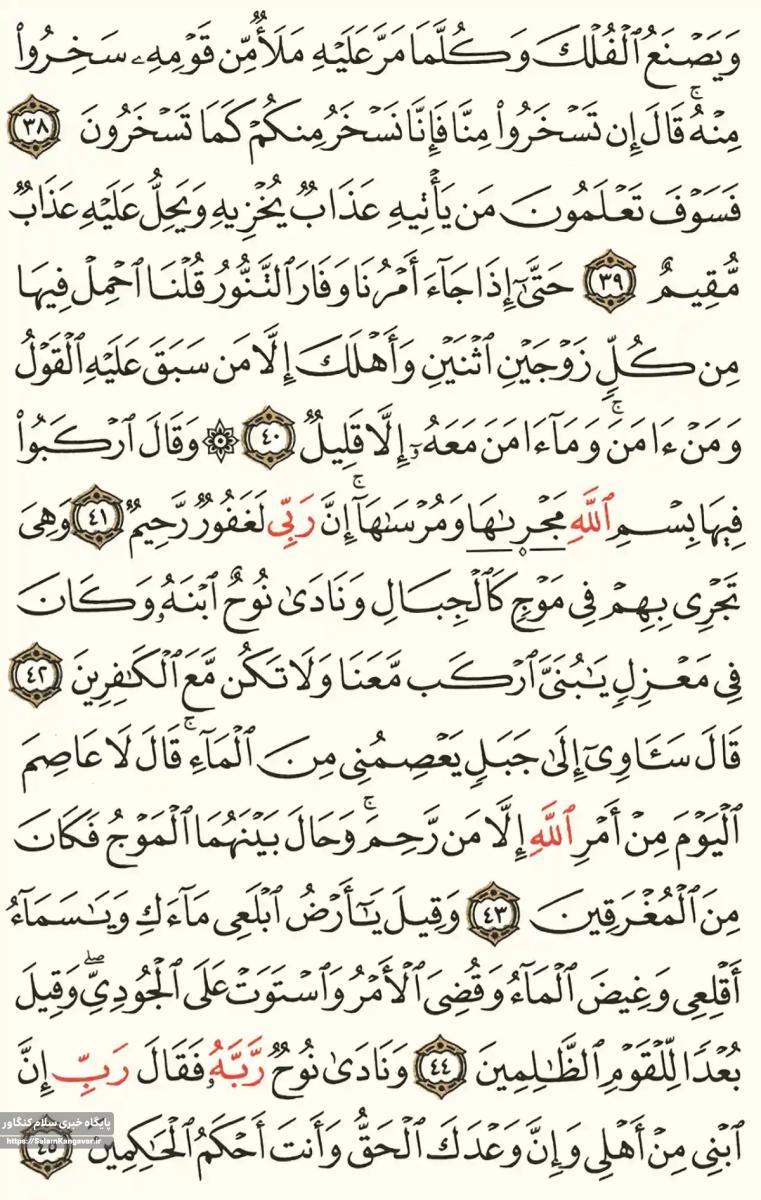 وَيَصۡنَعُ ٱلۡفُلۡكَ وَكُلَّمَا مَرَّ عَلَيۡهِ مَلَأٌ مِّن قَوۡمِهِۦ سَخِرُواْ
مِنۡهُۚ قَالَ إِن تَسۡخَرُواْ مِنَّا فَإِنَّا نَسۡخَرُ مِنكُمۡ كَمَا تَسۡخَرُونَ ٣٨
فَسَوۡفَ تَعۡلَمُونَ مَن يَأۡتِيهِ عَذَابٞ يُخۡزِيهِ وَيَحِلُّ عَلَيۡهِ عَذَابٞ
مُّقِيمٌ ٣٩ حَتَّىٰٓ إِذَا جَآءَ أَمۡرُنَا وَفَارَ ٱلتَّنُّورُ قُلۡنَا ٱحۡمِلۡ فِيهَا
مِن كُلّٖ زَوۡجَيۡنِ ٱثۡنَيۡنِ وَأَهۡلَكَ إِلَّا مَن سَبَقَ عَلَيۡهِ ٱلۡقَوۡلُ
وَمَنۡ ءَامَنَۚ وَمَآ ءَامَنَ مَعَهُۥٓ إِلَّا قَلِيلٞ ٤٠ ۞ وَقَالَ ٱرۡكَبُواْ
فِيهَا بِسۡمِ ٱللَّهِ مَجۡرٜىٰهَا وَمُرۡسَىٰهَآۚ إِنَّ رَبِّي لَغَفُورٞ رَّحِيمٞ ٤١ وَهِيَ
تَجۡرِي بِهِمۡ فِي مَوۡجٖ كَٱلۡجِبَالِ وَنَادَىٰ نُوحٌ ٱبۡنَهُۥ وَكَانَ
فِي مَعۡزِلٖ يَٰبُنَيَّ ٱرۡكَب مَّعَنَا وَلَا تَكُن مَّعَ ٱلۡكَٰفِرِينَ ٤٢
قَالَ سَـَٔاوِيٓ إِلَىٰ جَبَلٖ يَعۡصِمُنِي مِنَ ٱلۡمَآءِۚ قَالَ لَا عَاصِمَ
ٱلۡيَوۡمَ مِنۡ أَمۡرِ ٱللَّهِ إِلَّا مَن رَّحِمَۚ وَحَالَ بَيۡنَهُمَا ٱلۡمَوۡجُ فَكَانَ
مِنَ ٱلۡمُغۡرَقِينَ ٤٣ وَقِيلَ يَٰٓأَرۡضُ ٱبۡلَعِي مَآءَكِ وَيَٰسَمَآءُ
أَقۡلِعِي وَغِيضَ ٱلۡمَآءُ وَقُضِيَ ٱلۡأَمۡرُ وَٱسۡتَوَتۡ عَلَى ٱلۡجُودِيِّۖ وَقِيلَ
بُعۡدٗا لِّلۡقَوۡمِ ٱلظَّٰلِمِينَ ٤٤ وَنَادَىٰ نُوحٞ رَّبَّهُۥ فَقَالَ رَبِّ إِنَّ
ٱبۡنِي مِنۡ أَهۡلِي وَإِنَّ وَعۡدَكَ ٱلۡحَقُّ وَأَنتَ أَحۡكَمُ ٱلۡحَٰكِمِينَ ٤٥
پایگاه خبری سلام کنگاور
https://SalamKangavar.ir